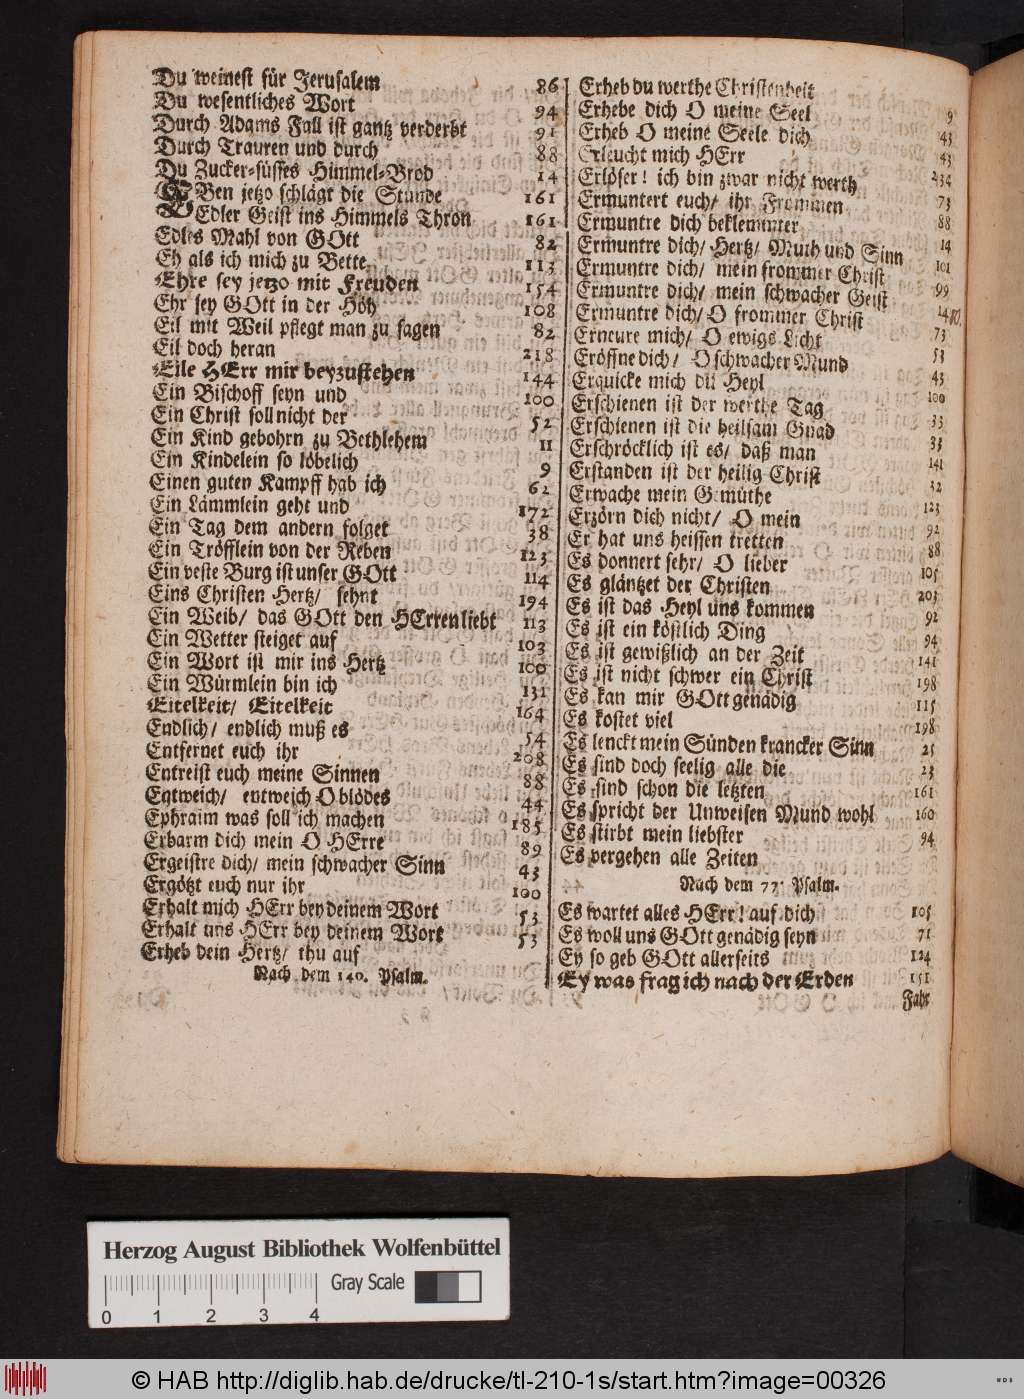 Du weinest für Jerusalem 86
Du wesentliches Wort 94
Durch Adams Fall ist gantz verderbt 91
Durch Trauren und durch 88
Du Zucker-süsses Himmel-Brod 14
EBen jetzo schlägt die Stunde 161
Edler Geist ins Himmels Thron 161
Edles Mahl von GOtt 82
Eh als ich mich zu Bette 113
Ehre sey jetzo mit Freuden 154
Ehr sey GOtt in der Höh 108
Eil mit Weil pflegt man zu sagen 82
Eil doch heran 218
Eile HErr mir beyzustehen 144
Ein Bischoff seyn und 100
Ein Christ soll nicht der 52
Ein Kind gebohrn zu Bethlehem 11
Ein Kindelein so löbelich 9
Einen guten Kampff hab ich 62
Ein Lämmlein geht und 172
Ein Tag dem andern folget 38
Ein Tröfflein von der Reben 123
Ein veste Burg ist unser GOtt 114
Eins Christen Hertz/ sehnt 194
Ein Weib/ das GOtt den HErren liebt 113
Ein Wetter steiget auf 103
Ein Wort ist mir ins Hertz 100
Ein Würmlein bin ich 131
Eitelkeit/ Eitelkeit 164
Endlich/ endlich muß es 54
Entfernet euch ihr 208
Entreist euch meine Sinnen 88
Entweich/ entweich O blödes 44
Ephraim was soll ich machen 185
Erbarm dich mein O HErre 89
Ergeistre dich/ mein schwacher Sinn 43
Ergötzt euch nur ihr 100
Erhalt mich HErr bey deinem Wort 53
Erhalt uns HErr bey deinem Wort 53
Erheb dein Hertz/ thu auf
Nach dem 140. Psalm.
Erheb du werthe Christenheit 9
Erhebe dich O meine Seel 43
Erheb O meine Seele dich 43
Erleucht mich HErr 234
Erlöser! ich bin zwar nicht werth 73
Ermuntert euch/ ihr Frommen 88
Ermuntre dich beklemmter 14
Ermuntre dich/ Hertz/ Muth und Sinn 101
Ermuntre dich/ mein frommer Christ 99
Ermuntre dich/ mein schwacher Geist
Ermuntre dich/ O frommer Christ 73
Erneure mich/ O ewigs Licht 53
Eröffne dich/ O schwacher Mund 43
Erquicke mich du Heyl 100
Erschienen ist der werthe Tag 33
Erschienen ist die heilsam Gnad 33
Erschröcklich ist es/ daß man 141
Erstanden ist der heilig Christ 32
Erwache mein Gemüthe 123
Erzörn dich nicht/ O mein 92
Er hat uns heissen tretten 88
Es donnert sehr/ O lieber 105
Es gläntzet der Christen 203
Es ist das Heyl uns kommen 92
Es ist ein köstlich Ding 94
Es ist gewißlich an der Zeit 141
Es ist nicht schwer ein Christ 198
Es kan mir GOtt genädig 115
Es kostet viel 198
Es lenckt mein Sünden krancker Sinn 25
Es sind doch seelig alle die 23
Es sind schon die letzten 161
Es spricht der Unweisen Mund wohl 160
Es stirbt mein liebster 94
Es vergehen alle Zeiten
Nach dem 77. Psalm.
Es wartet alles HErr! auf dich 105
Es woll uns GOtt genädig seyn 71
Ey so geb GOtt allerseits 124
Ey was frag ich nach der Erden 151
Fahr
Herzog August Bibliothek Wolfenbüttel
Gray Scale
0 1 2 3 4
© HAB http://diglib.hab.de/drucke/tl-210-1s/start.htm?image=00326